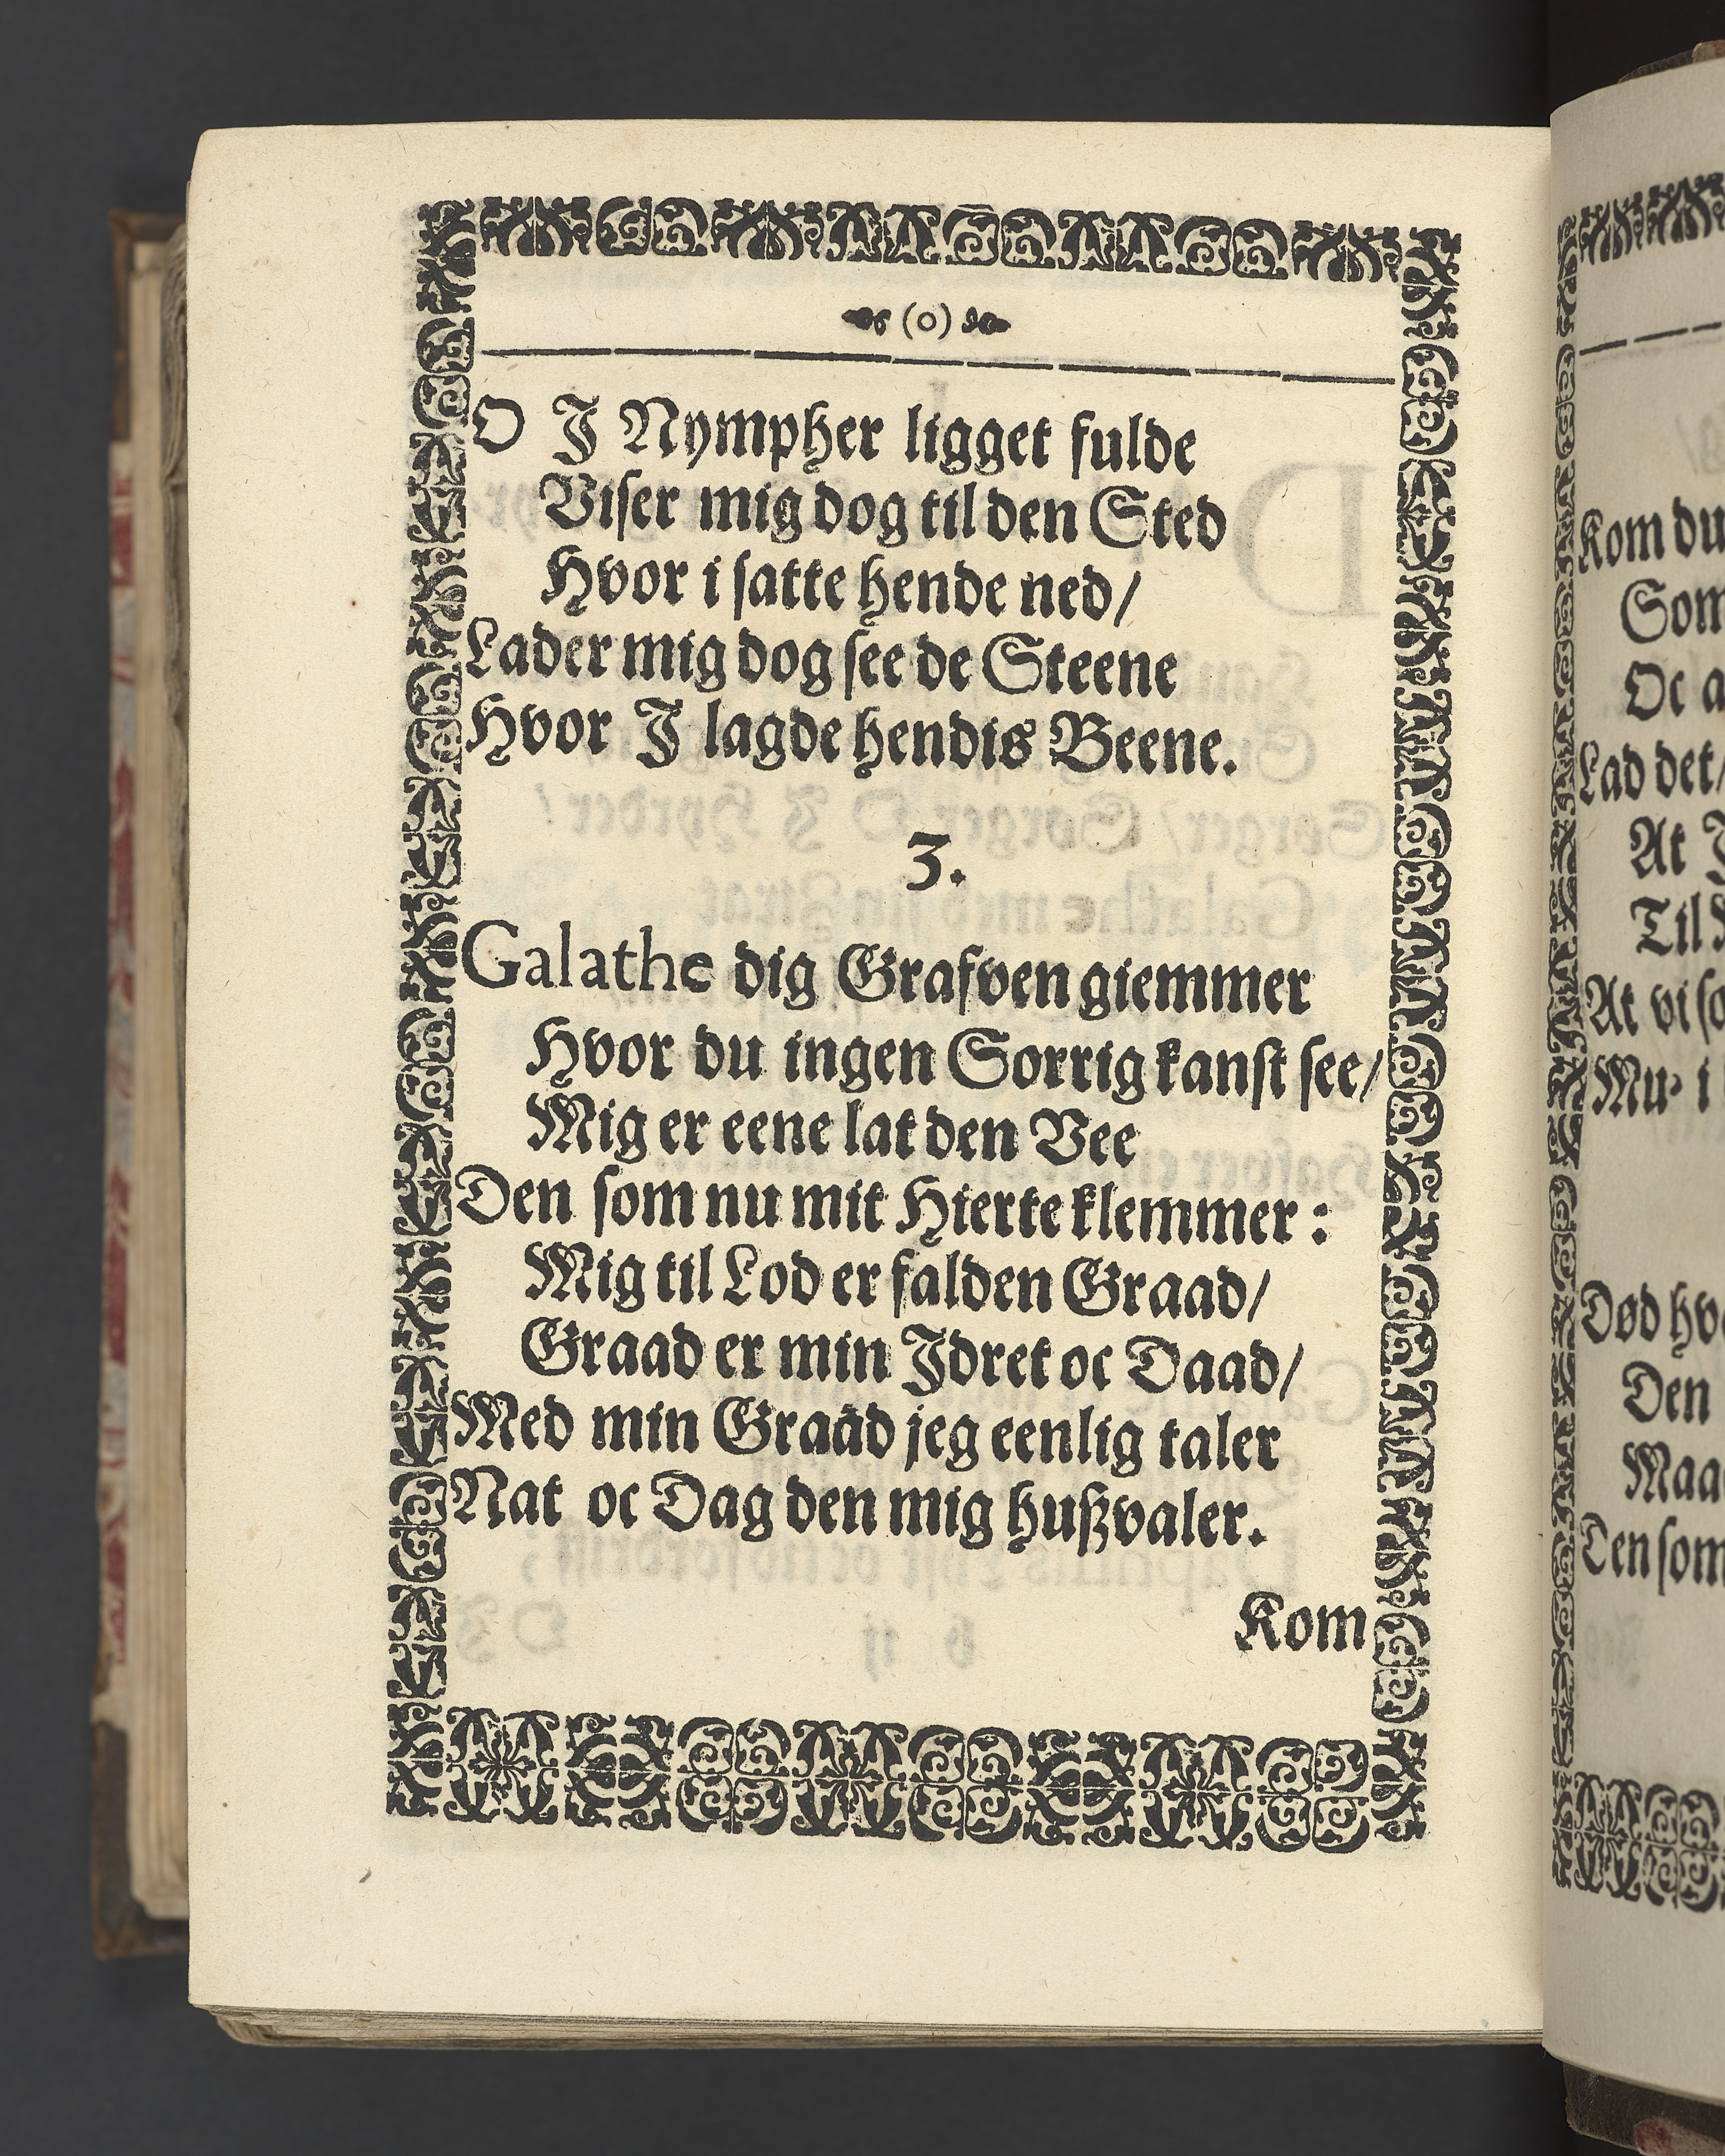 (o)
O J Nympher ligget fulde
Viser mig dog til den Sted
Hvor i satte hende ned/
Lader mig dog see de Steene
Hvor J lagde hendis Beene.
3.
Galathe dig Grafven giemmer
Hvor du ingen Sorrig kanst see/
Mig er eene lat den Vee
Den som nu mit Hierte klemmer:
Mig til Lod er falden Graad/
Graad er min Jdret oc Daad/
Med min Graad jeg eenlig taler
Nat oc Dag den mig hußvaler.
Kom
Kom du
Som
Oc a
Lad det/
At J
Til
At vi so
Mu- i
Død hv
Den
Maa
Den som